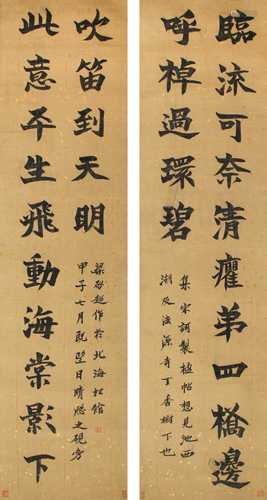 臨流可奈清癯第四橋邊
呼棹過環碧
集宋詞製楹帖想見西
湖及法源寺丁香樹下也
此意平生飛動海棠影下
吹笛到天明
梁啟超作於北海松館
甲子七月既望日晴之硯旁